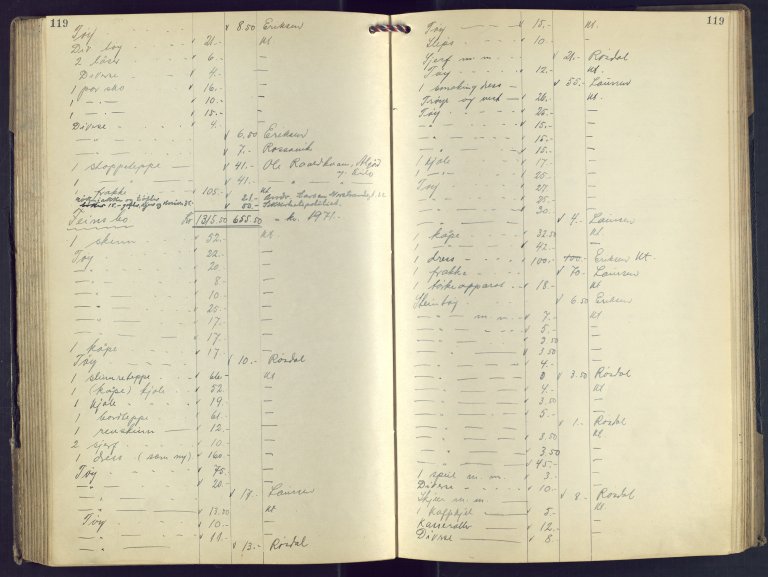 119
Tøy - - - v 8.50 Eriksen
Div. tøy v 21.- Kt.
2 låser v 6.- —
Diverse v 4.- —
1 par sko v 16.- —
1 — . — v 10.- —
— . — v 15.- —
Diverse v 4.-
v 6.50 Eriksen
v 7.-
1 stoppeteppe — v 41.- Ole
v 41.-
1 frakke - - v 105.- Kt
v 21.- Larsen
v 50.- Sikkerhetspolitiet
Feins bo Kr 1315.50 655.50 = kr. 1971.-
1 skinn v 52.- Kt
Tøy v 22.- —
— v 20.- —
— v 8.- —
— v 10.- —
— v 25.- —
— v 17.- —
— v 17.- —
1 kåpe v 17 —
Tøy v 10.- Røsdal
1 teppe v 66.- Kt
1 (kåpe) kjole v 52 —
1 kjole v 19 —
1 bordteppe v 61.- —
1 reinskinn v 12.- —
2 skjerf v 10 —
1 dress (som ny) v 160.- —
Tøy v 75.- —
— " — v 20.- —
v 17.- Laursen
— v 13.50 Kt
Tøy v 10.- —
— " — v 11.- —
v 13.- Røsdal
119
Tøy v 15.- Kt.
Slips v 10.- —
Skjerf m.m. v 21.- Røsdal
Tøy v 12.- Kt.
1 smoking dress — v 55.- Laursen
Trøye og vest — v 26.- Kt.
Tøy v 25.- —
— " — v 15.- —
— " — v 15.- —
— " — v 15.- —
1 kjole v 17.- —
— " — v 25.- —
Tøy v 27. —
— " — v 25.- —
— " — v 30.- —
v 4.- Laursen
1 kåpe v 32.50 Kt.
1 — " — v 42.- —
1 dress v 100.- 100.- Eriksen Kt.
1 frakke v 70.- Laursen
1 v 18.- Kt
Stentøy v 6.50 Eriksen
— " — m.m. v 7.- Kt
— " — v 5.- —
— v 3.50 —
— v 3.50 —
— v 4.- —
v 3.50 Røsdal
— v 4.- Kt
— v 3.50 —
— v 5.- —
v 1.- Røsdal
— v 3.50 Kt
— v 3.50 —
— v 45.- —
1 speil m.m. v 3.- —
Diverse v 10.- —
Skjeer m.m. v 8.- Røsdal
1 kaffekjel v 5.- Kt.
Kasseroller v 12.- —
Diverse v 8. —